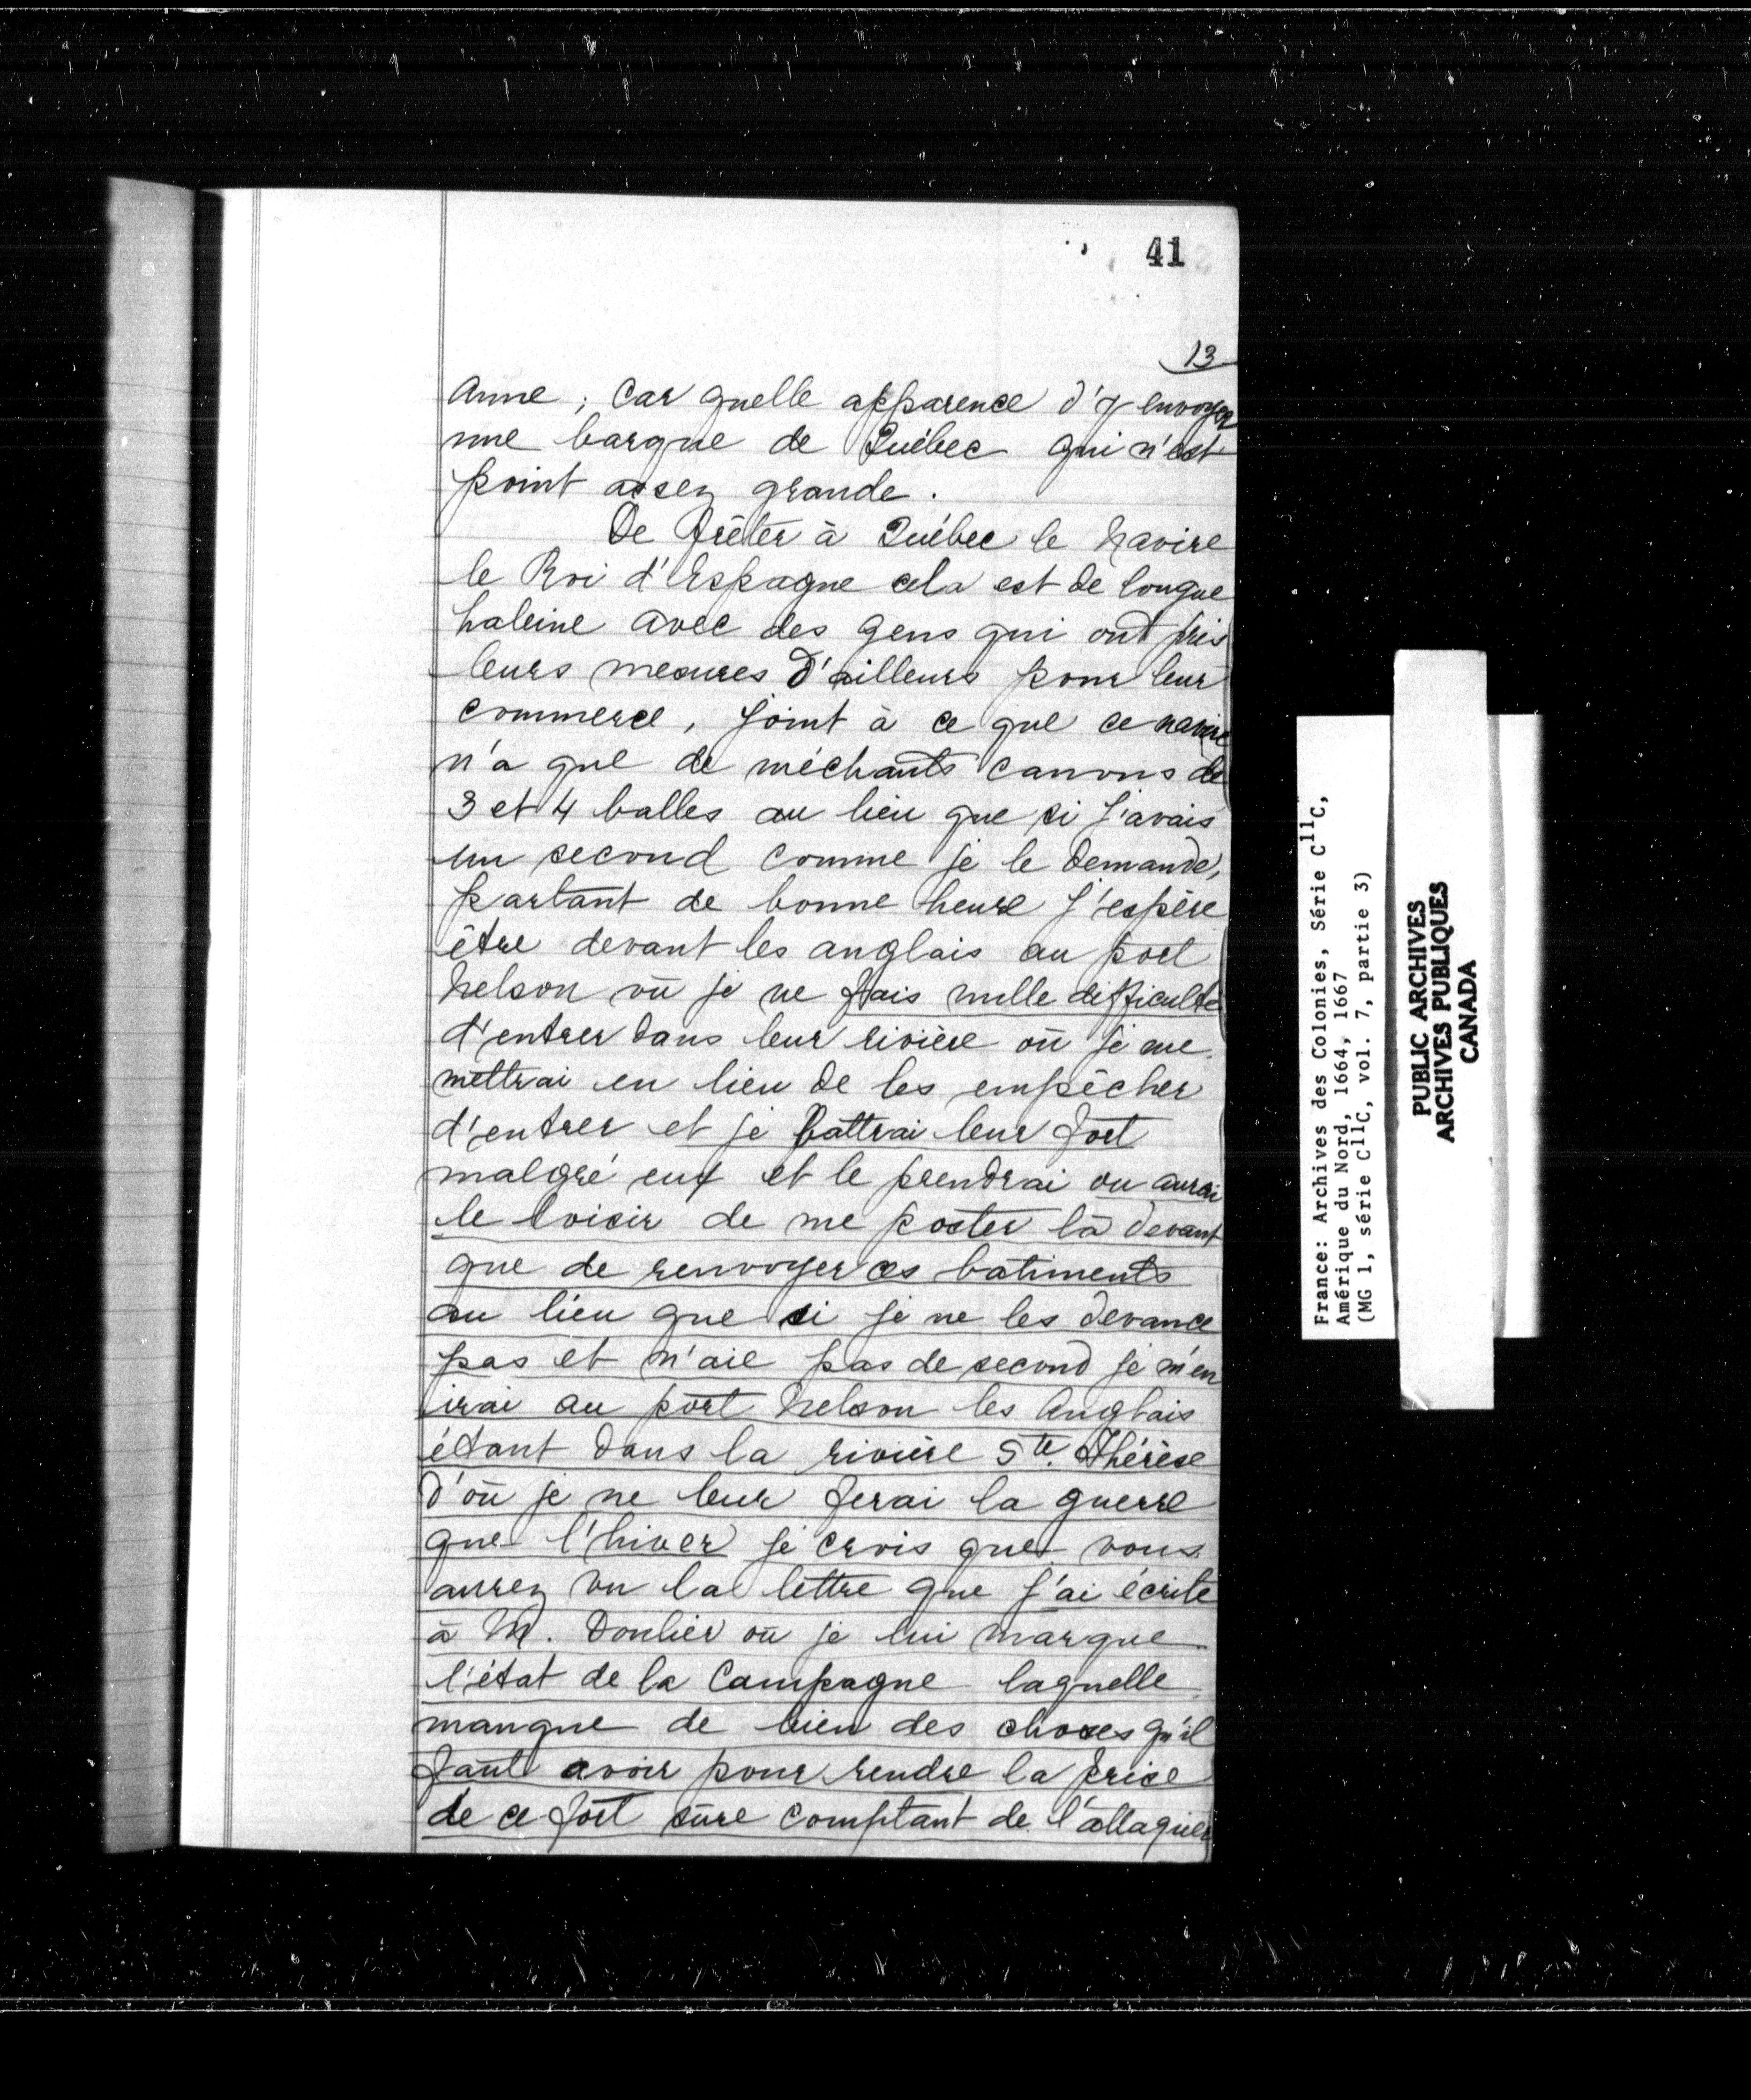 41
13
Anne; car quelle apparence d'y envoyer
une barque de Québec qui n'est
point assez grande.
De frêter à Québec le navire
le Roi d'Espagne cela est de longue
haleine avec des gens qui ont pris
leurs mesures d'ailleurs pour leur
commerce, joint à ce que ce navire
n'a que de méchants canons de
3 et 4 balles au lieu que si j'avais
un second comme je le demande,
partant de bonne heure j'espère
être devant les anglais au port
Nelson où je ne fais nulle difficulté
d'entrer dans leur rivière où je me
mettrai en lieu de les empêcher
d'entrer et je battrai leur fort
malgré eux et le prendrai ou aurai
le loisir de me poster là devant
que de renvoyer ces batiments
au lieu que si je ne les devance
pas et n'aie pas de second je m'en
irai au port Nelson les Anglais
étant dans la rivière Ste. Thérèse
d'où je ne leur ferai la guerre
que l'hiver je crois que vous
aurez vu la lettre que j'ai écrite
à M. Doulier où je lui marque
l'état de la Campagne laquelle
manque de bien des choses qu'il
faut avoir pour rendre la prise
de ce fort sûre comptant de l'attaquer
France: Archives des Colonies, Série C11C,
Amérique du Nord, 1664, 1667
(MG 1, série C11C, vol. 7, partie 3)
PUBLIC ARCHIVES
ARCHIVES PUBLIQUES
CANADA